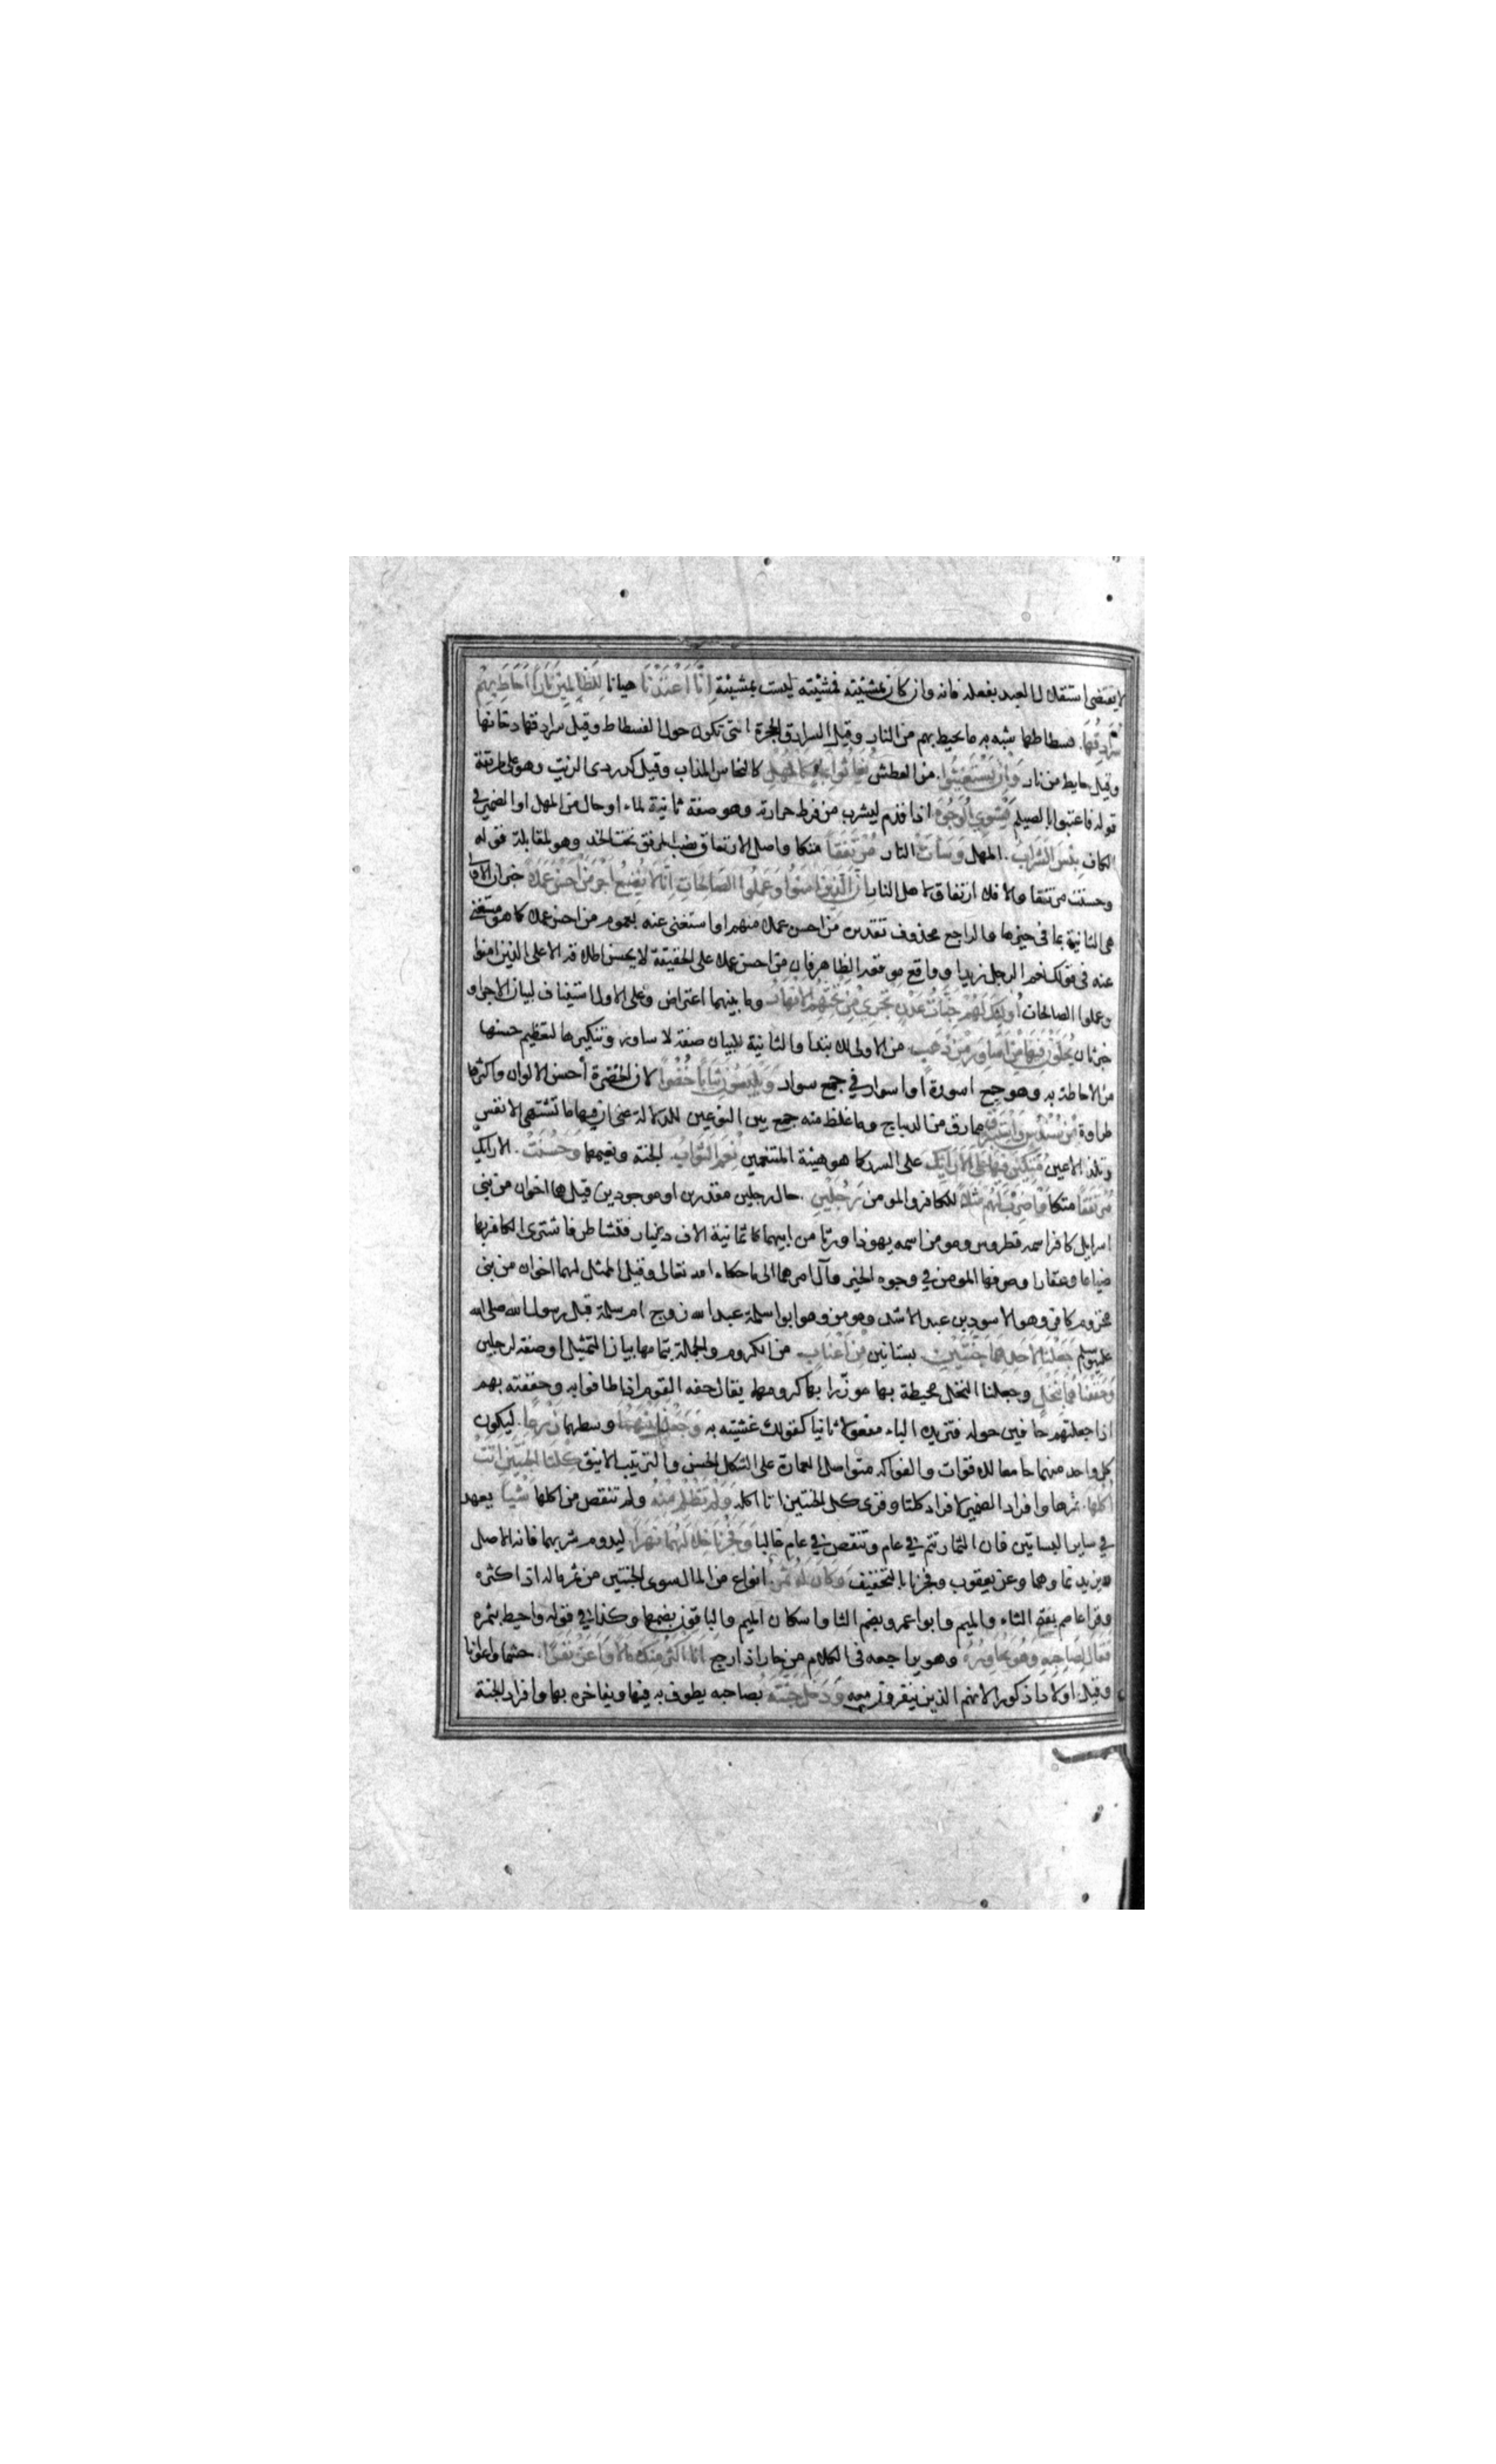 لا يقتضى استقلال العبد بفعله فانه وان كان بمشيته فمشيته ليست بمشيئة اِنَّا اَعْتَدْنَا هيانا لِلظَّالِمِينَ نَارًا اَحَاطَ بِهِمْ
سُرَادِقُهَا. فسطاطها شبه به ما يحيط بهم من النار وقيل السرادق الحجرة التى تكون حول الفسطاط وقيل سرادقها دخانها
وقيل حايط من نار وَاِنْ يَسْتَغِيثُوا. من العطش يُغَاثُوا بِمَاءٍ كَالْمُهْلِ كالنحاس المذاب وقيل كدردى الزيت وهو على طريقة
قوله فاعتبوا بالصيلم يَشْوِي الْوُجُوهَ اذا قدم ليشرب من فرط حرارته وهو صفة ثانية لماء او حال من المهل او الضمير فى
الكاف بِئْسَ الشَّرَابُ. المهل وَسَاءَتْ النار مُرْتَفَقًا متكا واصل الارتفاق نصب المرفق تحت الخد وهو لمقابلة قوله
وحسنت مرتفقا والا فلا ارتفاق لاهل النار اِنَّ الَّذِينَ اٰمَنُوا وَعَمِلُوا الصَّالِحَاتِ اِنَّا لَا نُضِيعُ اَجْرَ مَنْ اَحْسَنَ عَمَلًا خبر ان الاولى
هى الثانية بما فى حيزها والراجع محذوف تقديره من احسن عملا منهم او استغنى عنه بعموم من احسن عملا كما هو مستغنى
عنه فى قولك نعم الرجل زيد او واقع موقعه الظاهر فان من احسن عملا على الحقيقة لا يحسن اطلاقه الا على الذين امنوا
وعملوا الصالحات اُولٰئِكَ لَهُمْ جَنَّاتُ عَدْنٍ تَجْرِي مِنْ تَحْتِهِمُ الْاَنْهَارُ وما بينهما اعتراض وعلى الاول استيناف لبيان الاجر او
خبر ثان يُحَلَّوْنَ فِيهَا مِنْ اَسَاوِرَ مِنْ ذَهَبٍ. من الاولى للابتدا والثانية للبيان صفة لاساور وتنكيرها لتعظيم حسنها
من الاحاطة به وهو جمع اسورة او اسوار فى جمع سوار وَيَلْبَسُونَ ثِيَابًا خُضْرًا لان الخضرة أحسن الالوان واكثرها
طراوة مِنْ سُنْدُسٍ وَاِسْتَبْرَقٍ مما رق من الديباج وما غلظ منه جمع بين النوعين للدلالة على ان فيها ما تشتهى الانفس
وتلذ الاعين مُتَّكِئِينَ فِيهَا عَلَى الْاَرَائِكِ على السرر كما هو هيئة المتنعمين نِعْمَ الثَّوَابُ الجنة ونعيمها وَحَسُنَتْ. الارايك
مُرْتَفَقًا متكا وَاضْرِبْ لَهُمْ مَثَلًا للكافر والمومن رَجُلَيْنِ. حال رجلين مقدرين او موجودين قيل هما اخوان من بنى
اسرايل كافر اسمه قطروس ومومن اسمه يهوذا ورثا من ابيهما ثمانية الاف دينار فتشاطرا فاشترى الكافر بها
ضياعا وعقارا وصرفها المومن فى وجوه الخير وآل امرهما الى ما حكاه الله تعالى وقيل الممثل لهما اخوان من بنى
مخزوم كافر وهو الاسود بن عبد الاشد ومومن وهو ابو سلمة عبد الله زوج ام سلمة قبل رسول الله صلى الله
عليه وسلم جَعَلْنَا لِاَحَدِهِمَا جَنَّتَيْنِ. بستانين مِنْ اَعْنَابٍ. من الكروم والجملة بتمامها بيان التمثيل او صفة لرجلين
وَحَفَفْنَاهُمَا بِنَخْلٍ وجعلنا النخل محيطة بهما موزرا بها كرومهما يقال حفه القوم اذا طافوا به وحففته بهم
اذا جعلتهم حافين حوله فتزيده الباء مفعولا ثانيا كقولك غشيته به وَجَعَلْنَا بَيْنَهُمَا وسطهما زَرْعًا. ليكون
كل واحد منهما جامعا للاقوات والفواكه متواصل العمارة على الشكل الحسن والترتيب الانيق كِلْتَا الْجَنَّتَيْنِ اٰتَتْ
اُكُلَهَا. ثمرها وافراد الضمير لافراد كلتا وقرى كل الجنتين اتا اكله وَلَمْ تَظْلِمْ مِنْهُ ولم تنقص من اكلها شَيْئًا يعهد
في ساير البساتين فان الثمار تتم في عام وتنقص في عام غالبا وَفَجَّرْنَا خِلَالَهُمَا نَهَرًا. ليدوم شربهما فانه الاصل
ويزيد بهاوهما وعن يعقوب وفجرنا بالتخفيف وَكَانَ لَهُ ثَمَرٌ انواع من المال سوى الجنتين من ثمر ماله اذا كثره
وقرا عاصم بفتح الثاء والميم وابو عمرو بضم الثا واسكان الميم والباقون بضمهما وكذا في قوله واحيط بثمره
فَقَالَ لِصَاحِبِهِ وَهُوَ يُحَاوِرُهُ وهو يراجعه فى الكلام من حار اذا رجع اَنَا اَكْثَرُ مِنْكَ مَالًا وَاَعَزُّ نَفَرًا. حشما واعوانا
وقيل اولادا ذكورا لانهم الذين ينفرون معه وَدَخَلَ جَنَّتَهُ بصاحبه يطوف به فيها ويفاخره بها وافراد الجنة